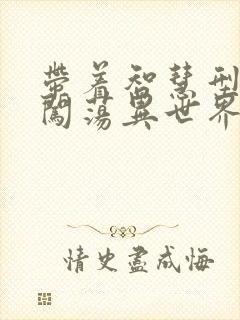 带着智慧型
闯荡异世界
情史尽成悔